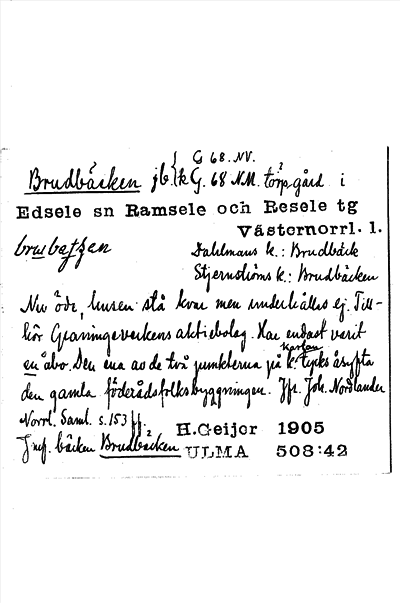 G 68. NV.
Brudbäcken jb. { k G. 68 N.M. torp, gård i
Edsele sn Ramsele och Resele tg
Västernorrl. l.
Dahlmans k.: Brudbäck
Stjernströms k.: Brudbäcken
Nu öde, husen stå kvar men underhålles ej. Till-
hör Graningeverkens aktiebolag. Har endast varit
en åbo. Den ena av de två punkterna på kartan tycks åsyfta
den gamla föderådsfolksbyggningen. Jfr. Joh. Nordlander
Norrl. Saml. s. 153 ff.
H. Geijer 1905
Jmf. bäcken Brudbäcken
ULMA 508:42